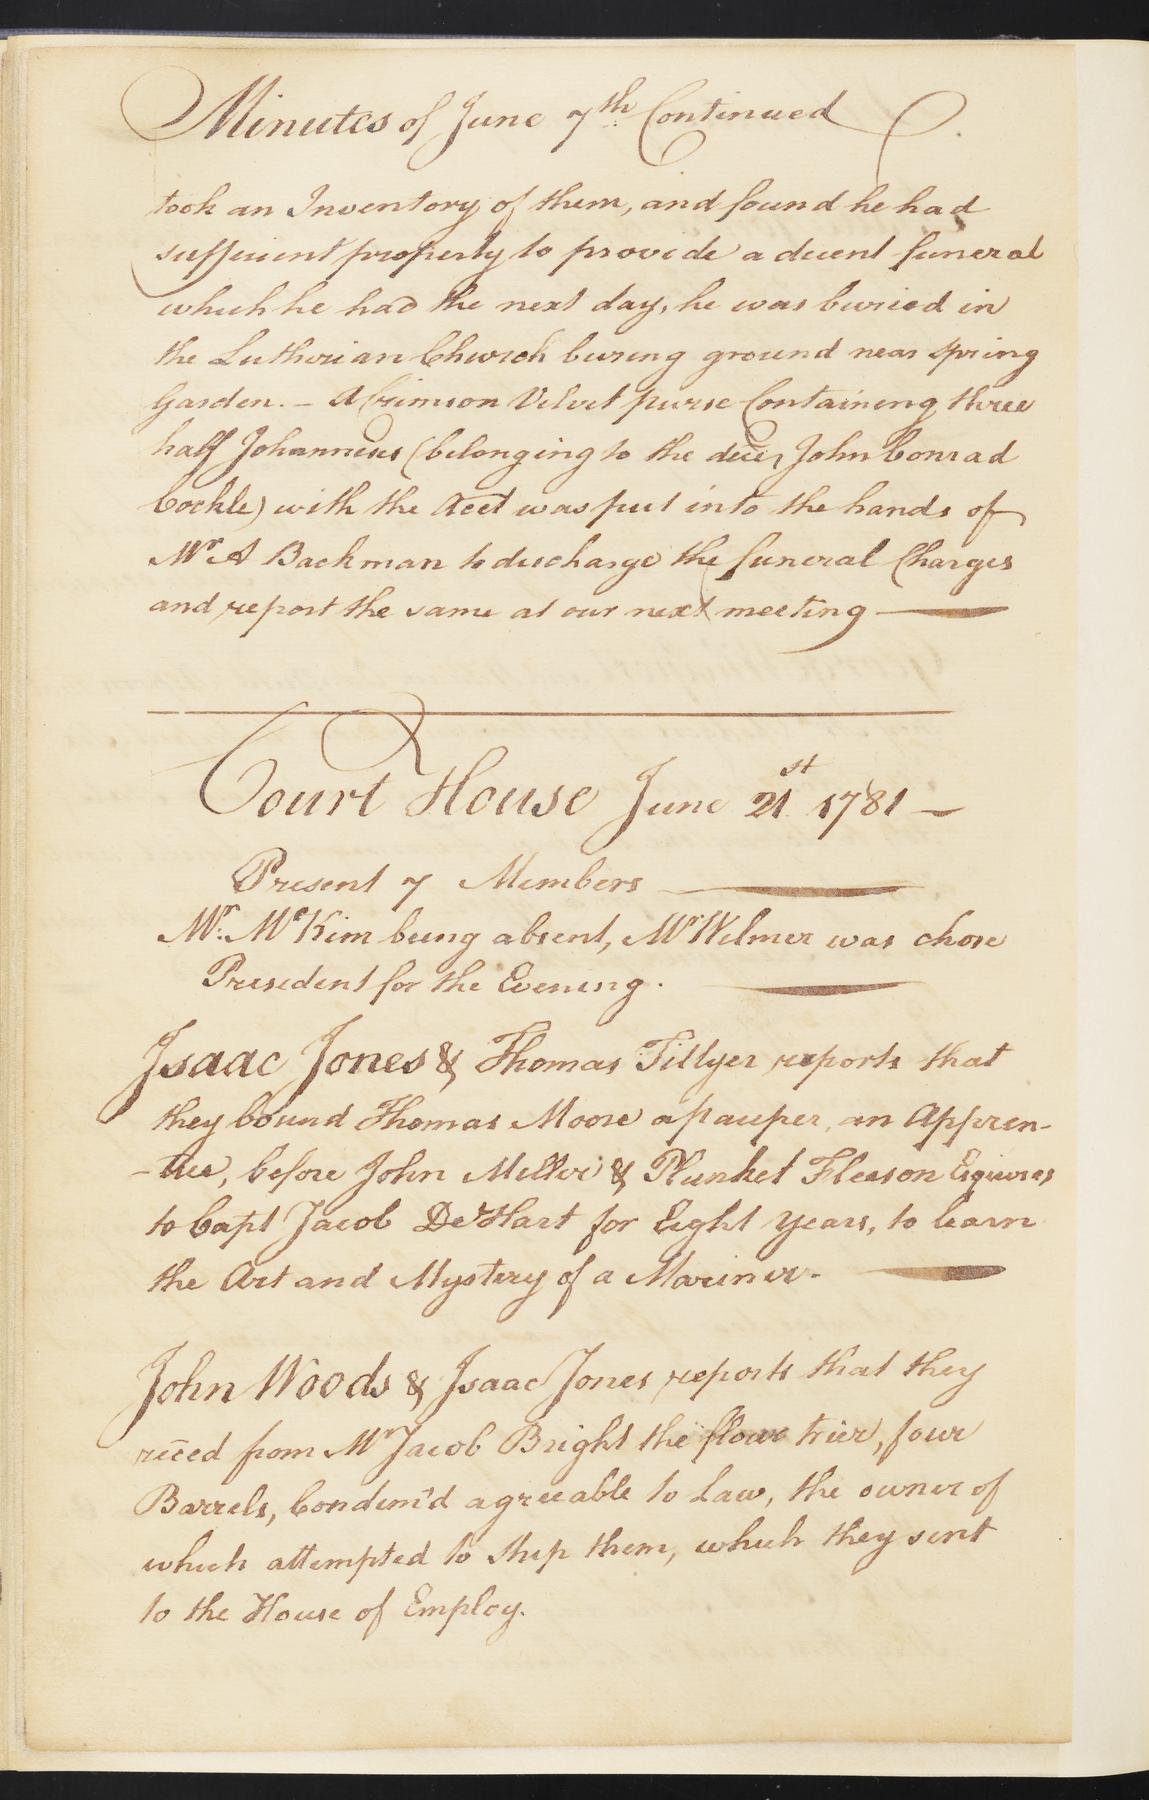 Minutes of June 7th: Continued
took an Inventory of them, and found he had
suffecient property to provide a decent funeral
which he had the next day, he was buried in
the Lutherian Church buring ground near spring
Garden. – A Crimson Velvet purse Containing three
half Johanneses (belonging to the John Conrad
Cockle) with the Acct was put into the hands of
Mr A Backman to discharge the funeral Charges
and report the same at our next meeting —
Court House June 21st 1781 —
Present 7 Members —
Mr: McKim being absent, Mr Wilmer was chose
President for the Evening. —
Isaac Jones & Thomas Tillyer reports that
they bound Thomas Moore a pauper, an Appren-
-tice, before John Miller & Plunket Fleason Equires
to Capt Jacob De Hart for Eight years, to learn
the Art and Mystery of a Mariner. —
John Woods & Isaac Jones reports that they
reced from Mr Jacob Bright the flour trier, four
Barrels, Condem'd agreeable to Law, the owner of
which attempted to ship them, which they sent
to the House of Employ.